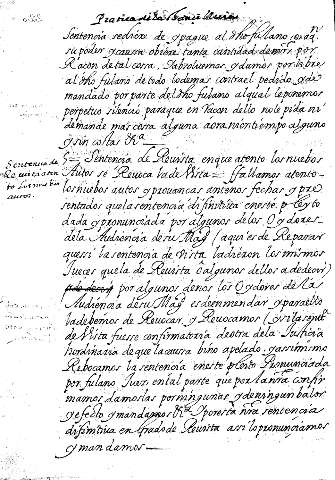 Practica de la
Sentencia se dize de y pague al dho fulano
su poder y causa obiere tanta cantidad de mrs por
Raçon de tal cosa. y absolvemos y damos por libre
al dho fulano de todo lo demas contra el pedido y de
mandado por parte del dho fulano al qual le ponemos
perpetuo silencio para que en racon dello no le pida ni
demande mas cosa alguna aora ni en tiempo alguno
y sin costas &ra
Sentencia de
Revista
autos.
Sentencia de Revista en que atento los nuebos
Autos se Revoca la de Vista = fallamos atento
los nuebos autos y provanças ante nos fechas y pre
sentados que la sentencia difinitiva en este pleyto
dada y pronunciada por algunos de los Oydores
de la Audiencia de su Magd (aqui es de Reparar
que si la sentencia de Vista la dieron los mismos
Jueces que la de Revista o algunos dellos a de decir)
por algunos de nos los Oydores de la
Audiencia de su Magd es de enmendar y para ello
la debemos de Revocar, y Revocamos (y si la sentª
de Vista fuesse confirmatoria de otra de la Justicia
hordinaria de que la caussa bino apelado) y assimismo
Rebocamos la sentencia en este pleito Pronunciada
por fulano Juez en tal parte que por la nra confir
mamos, damos las por ningunas y de ningun balor
y efecto y mandamos &ra y por esta nra sentencia
difinitiva en Grado de Revista assi lo pronunciamos
y mandamos